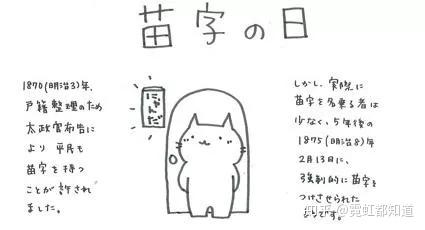 苗字の日
1870(明治3)年、
戸籍整理のため
太政官布告に
より 平民も
苗字を持つ
ことが許され
ました。
にゃんだ
しかし、実際に
苗字を名乗る者は
少なく、5年後の
1875(明治8)年
2月13日に、
強制的に苗字を
つけさせられた
そうです。
知乎 @霓虹都知道